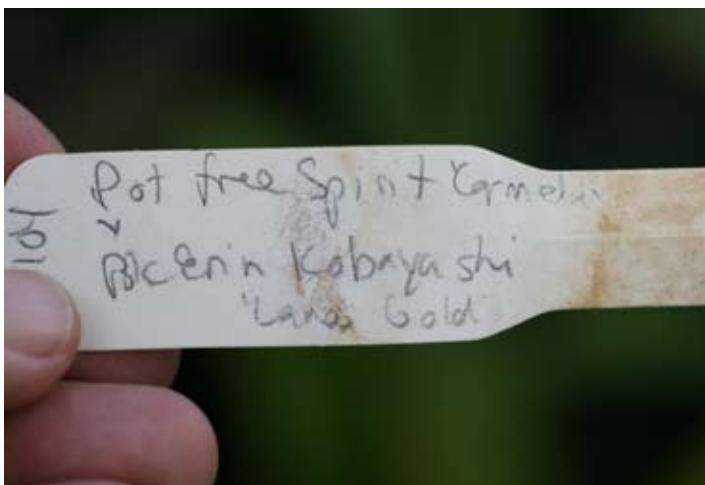 101
Pot free Spirit Carmela
Blc Erin Kobayashi
'Lanas Gold'